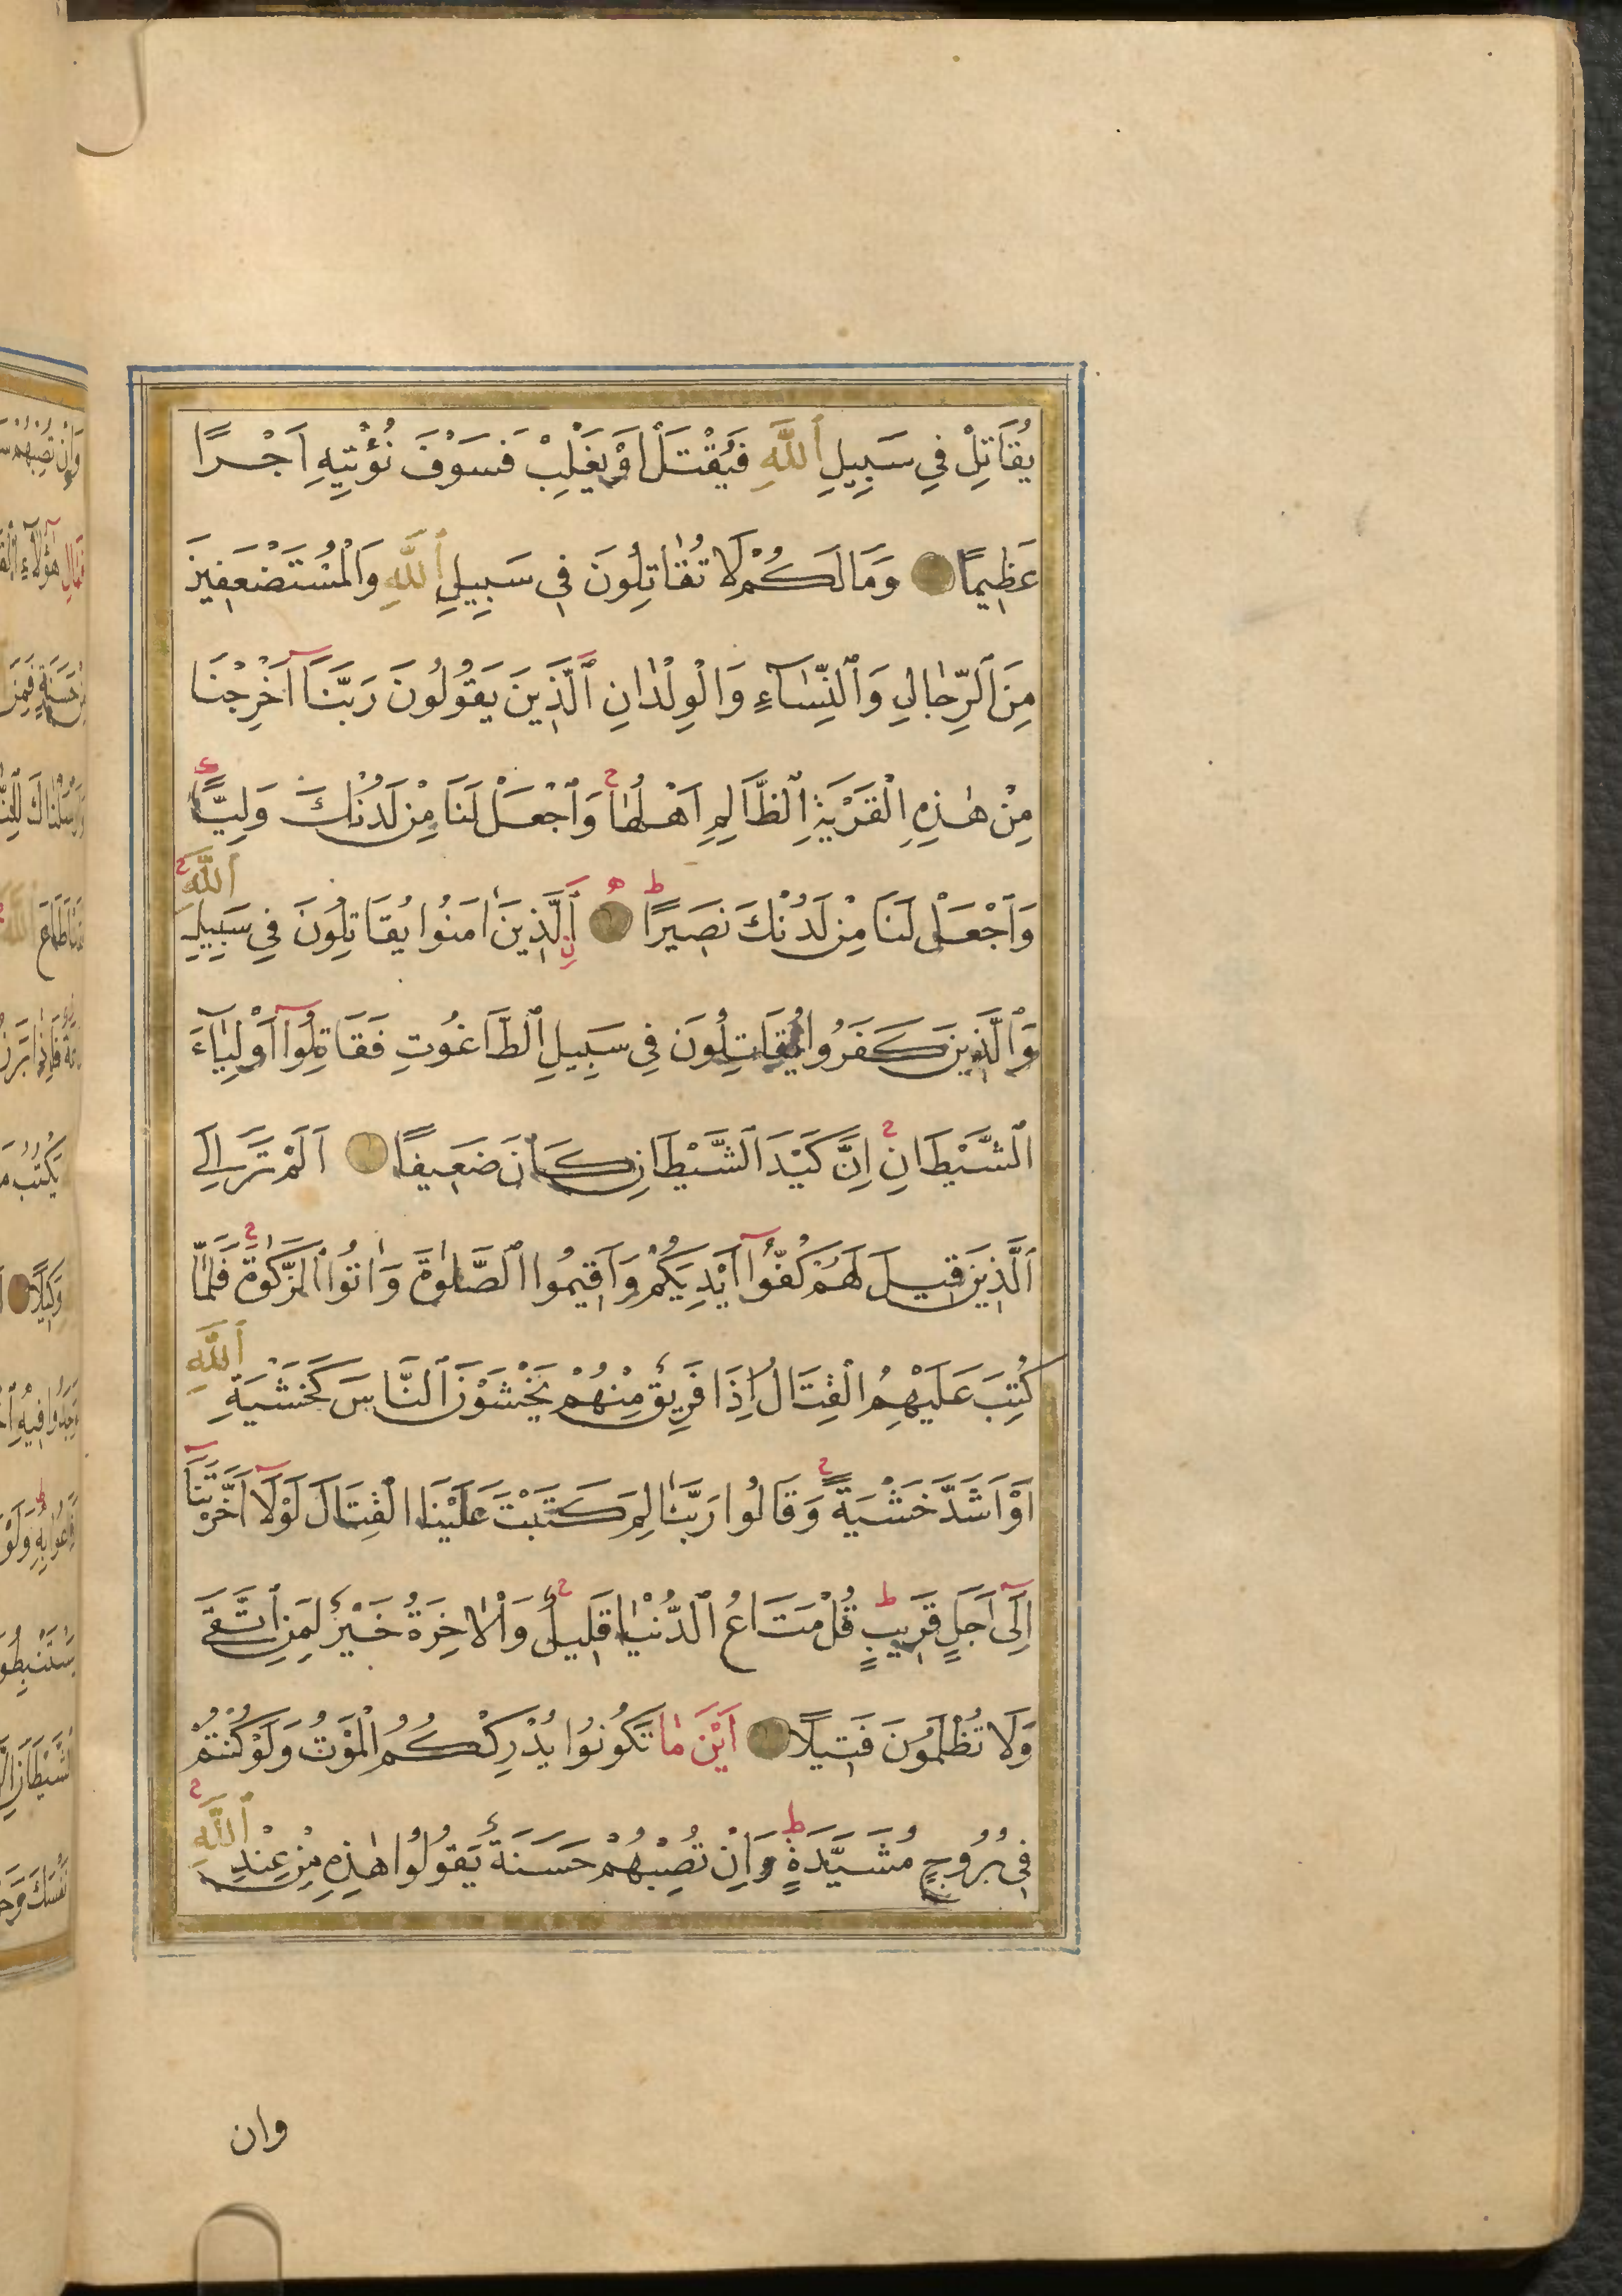 يُقَاتِلْ فِي سَبِيلِ ٱللَّهِ فَيُقْتَلْ اَوْ يَغْلِبْ فَسَوْفَ نُؤْتِيهِ اَجْرًا
عَظِيمًا وَمَا لَكُمْ لَا تُقَاتِلُونَ فِي سَبِيلِ ٱللَّهِ وَالْمُسْتَضْعَفِينَ
مِنَ ٱلرِّجَالِ وَٱلنِّسَآءِ وَالْوِلْدَانِ ٱلَّذِينَ يَقُولُونَ رَبَّنَآ اَخْرِجْنَا
مِنْ هٰذِهِ الْقَرْيَةِ ٱلظَّالِمِ اَهْلُهَا وَٱجْعَلْ لَنَا مِنْ لَدُنْكَ وَلِيًّا
وَٱجْعَلْ لَنَا مِنْ لَدُنْكَ نَصِيرًا ٱلَّذِينَ اٰمَنُوا يُقَاتِلُونَ فِي سَبِيلِ ٱللَّهِ
وَٱلَّذِينَ كَفَرُوا يُقَاتِلُونَ فِي سَبِيلِ ٱلطَّاغُوتِ فَقَاتِلُوآ اَوْلِيَآءَ
ٱلشَّيْطَانِ اِنَّ كَيْدَ ٱلشَّيْطَانِ كَانَ ضَعِيفًا اَلَمْ تَرَ اِلَى
ٱلَّذِينَ قِيلَ لَهُمْ كُفُّوآ اَيْدِيَكُمْ وَاَقِيمُوا ٱلصَّلٰوةَ وَاٰتُوا ٱلزَّكٰوةَ فَلَمَّا
كُتِبَ عَلَيْهِمُ الْقِتَالُ اِذَا فَرِيقٌ مِنْهُمْ يَخْشَوْنَ ٱلنَّاسَ كَخَشْيَةِ ٱللَّهِ
اَوْ اَشَدَّ خَشْيَةً وَقَالُوا رَبَّنَا لِمَ كَتَبْتَ عَلَيْنَا الْقِتَالَ لَوْلَآ اَخَّرْتَنَآ
اِلَىٓ اَجَلٍ قَرِيبٍ قُلْ مَتَاعُ ٱلدُّنْيَا قَلِيلٌ وَالْاٰخِرَةُ خَيْرٌ لِمَنِ ٱتَّقَى
وَلَا تُظْلَمُونَ فَتِيلًا اَيْنَ مَا تَكُونُوا يُدْرِكْكُمُ الْمَوْتُ وَلَوْ كُنْتُمْ
فِي بُرُوجٍ مُشَيَّدَةٍ وَاِنْ تُصِبْهُمْ حَسَنَةٌ يَقُولُوا هٰذِهِ مِنْ عِنْدِ ٱللَّهِ
وان